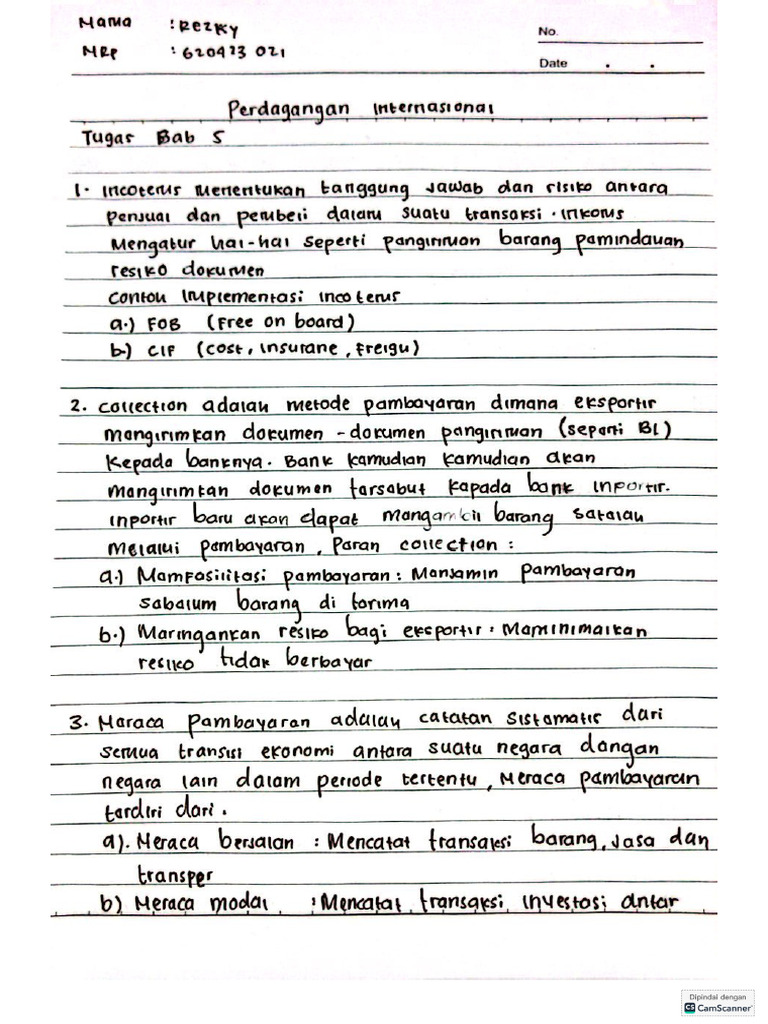 Nama : Rezky
No.
NRP : 620423 021
Date . .
Perdagangan Internasional
Tugas Bab 5
1. Incoterms menentukan tanggung Jawab dan risiko antara
penjual dan pembeli dalam suatu transaksi. Inkoms
Mengatur hal-hal seperti pangiriman barang pamindahan
resiko dokumen
contoh Implementasi incoterms
a.) FOB (Free on board)
b.) CIF (cost, insurane, Freigh)
2. collection adalah metode pambayaran dimana eksportir
mangirimkan dokumen-dokumen pangiriman (separti BL)
Kepada banknya. Bank kamudian kamudian akan
mangirimkan dokumen tarsabut kapada bank inportir.
inportir baru akan dapat mangambil barang satalah
melalui pambayaran, Paran collection :
a.) Mamfasilitasi pambayaran : Manjamin pambayaran
sabalum barang di tarima
b.) Maringankan resiko bagi eksportir : Maminimalkan
resiko tidak berbayar
3. Naraca pambayaran adalah catatan sistamatis dari
semua transisi ekonomi antara suatu negara dangan
negara lain dalam periode tertentu, Neraca pambayaran
tardiri dari.
a). Neraca berjalan : Mencatat transaksi barang, Jasa dan
transper
b) Neraca modal : Mencatat transaksi investasi antar
Dipindai dengan
CS CamScanner